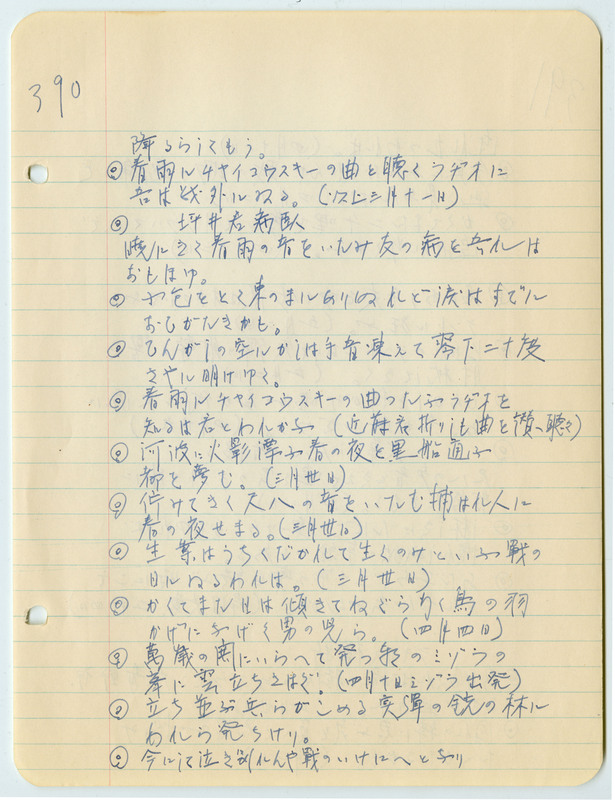 390
降るらしてもう。
◎春雨にチャイコウスキーの曲を聴くラヂオに
吾は伐外にゐる。(以上三月十一日)
◎ 坪井君病臥
暁にきく春雨の音をいたみ友の病を吾れは
おもほゆ。
◎ 包をとく東のまにありぬれど涙はすでに
おちがたきかも。
◎ひんがしの空にかしは手音凍えて零下二十度
さやに明けゆく。
◎春雨にチャイコウスキーの曲つたふラヂオを
知るは君とわれかふ (近藤君折りしも曲を讃へ聴く)
◎河波に火影漂ふ春の夜を黒船通ふ
都を夢む。(三月廿日)
◎佇みてきく尺八の音をいたむ捕はれ人に
春の夜せまる。(三月廿日)
◎生業はうちくだかれて生くのみといふ戦の
日にゐるわれは。(三月廿日)
◎かくてまた日は傾きてねぐら行く鳥の羽
かげになげく男の児ら。(四月四日)
◎萬歳の聞にいらへて発つ我のミゾラの
峯に雲立ちさはぐ。(四月十日ミゾラ出発)
◎立ち並ぶ兵らがこめる実弾の銃の林に
われら発ちけり。
◎今にして泣き別れんや戦のいけにへとなり